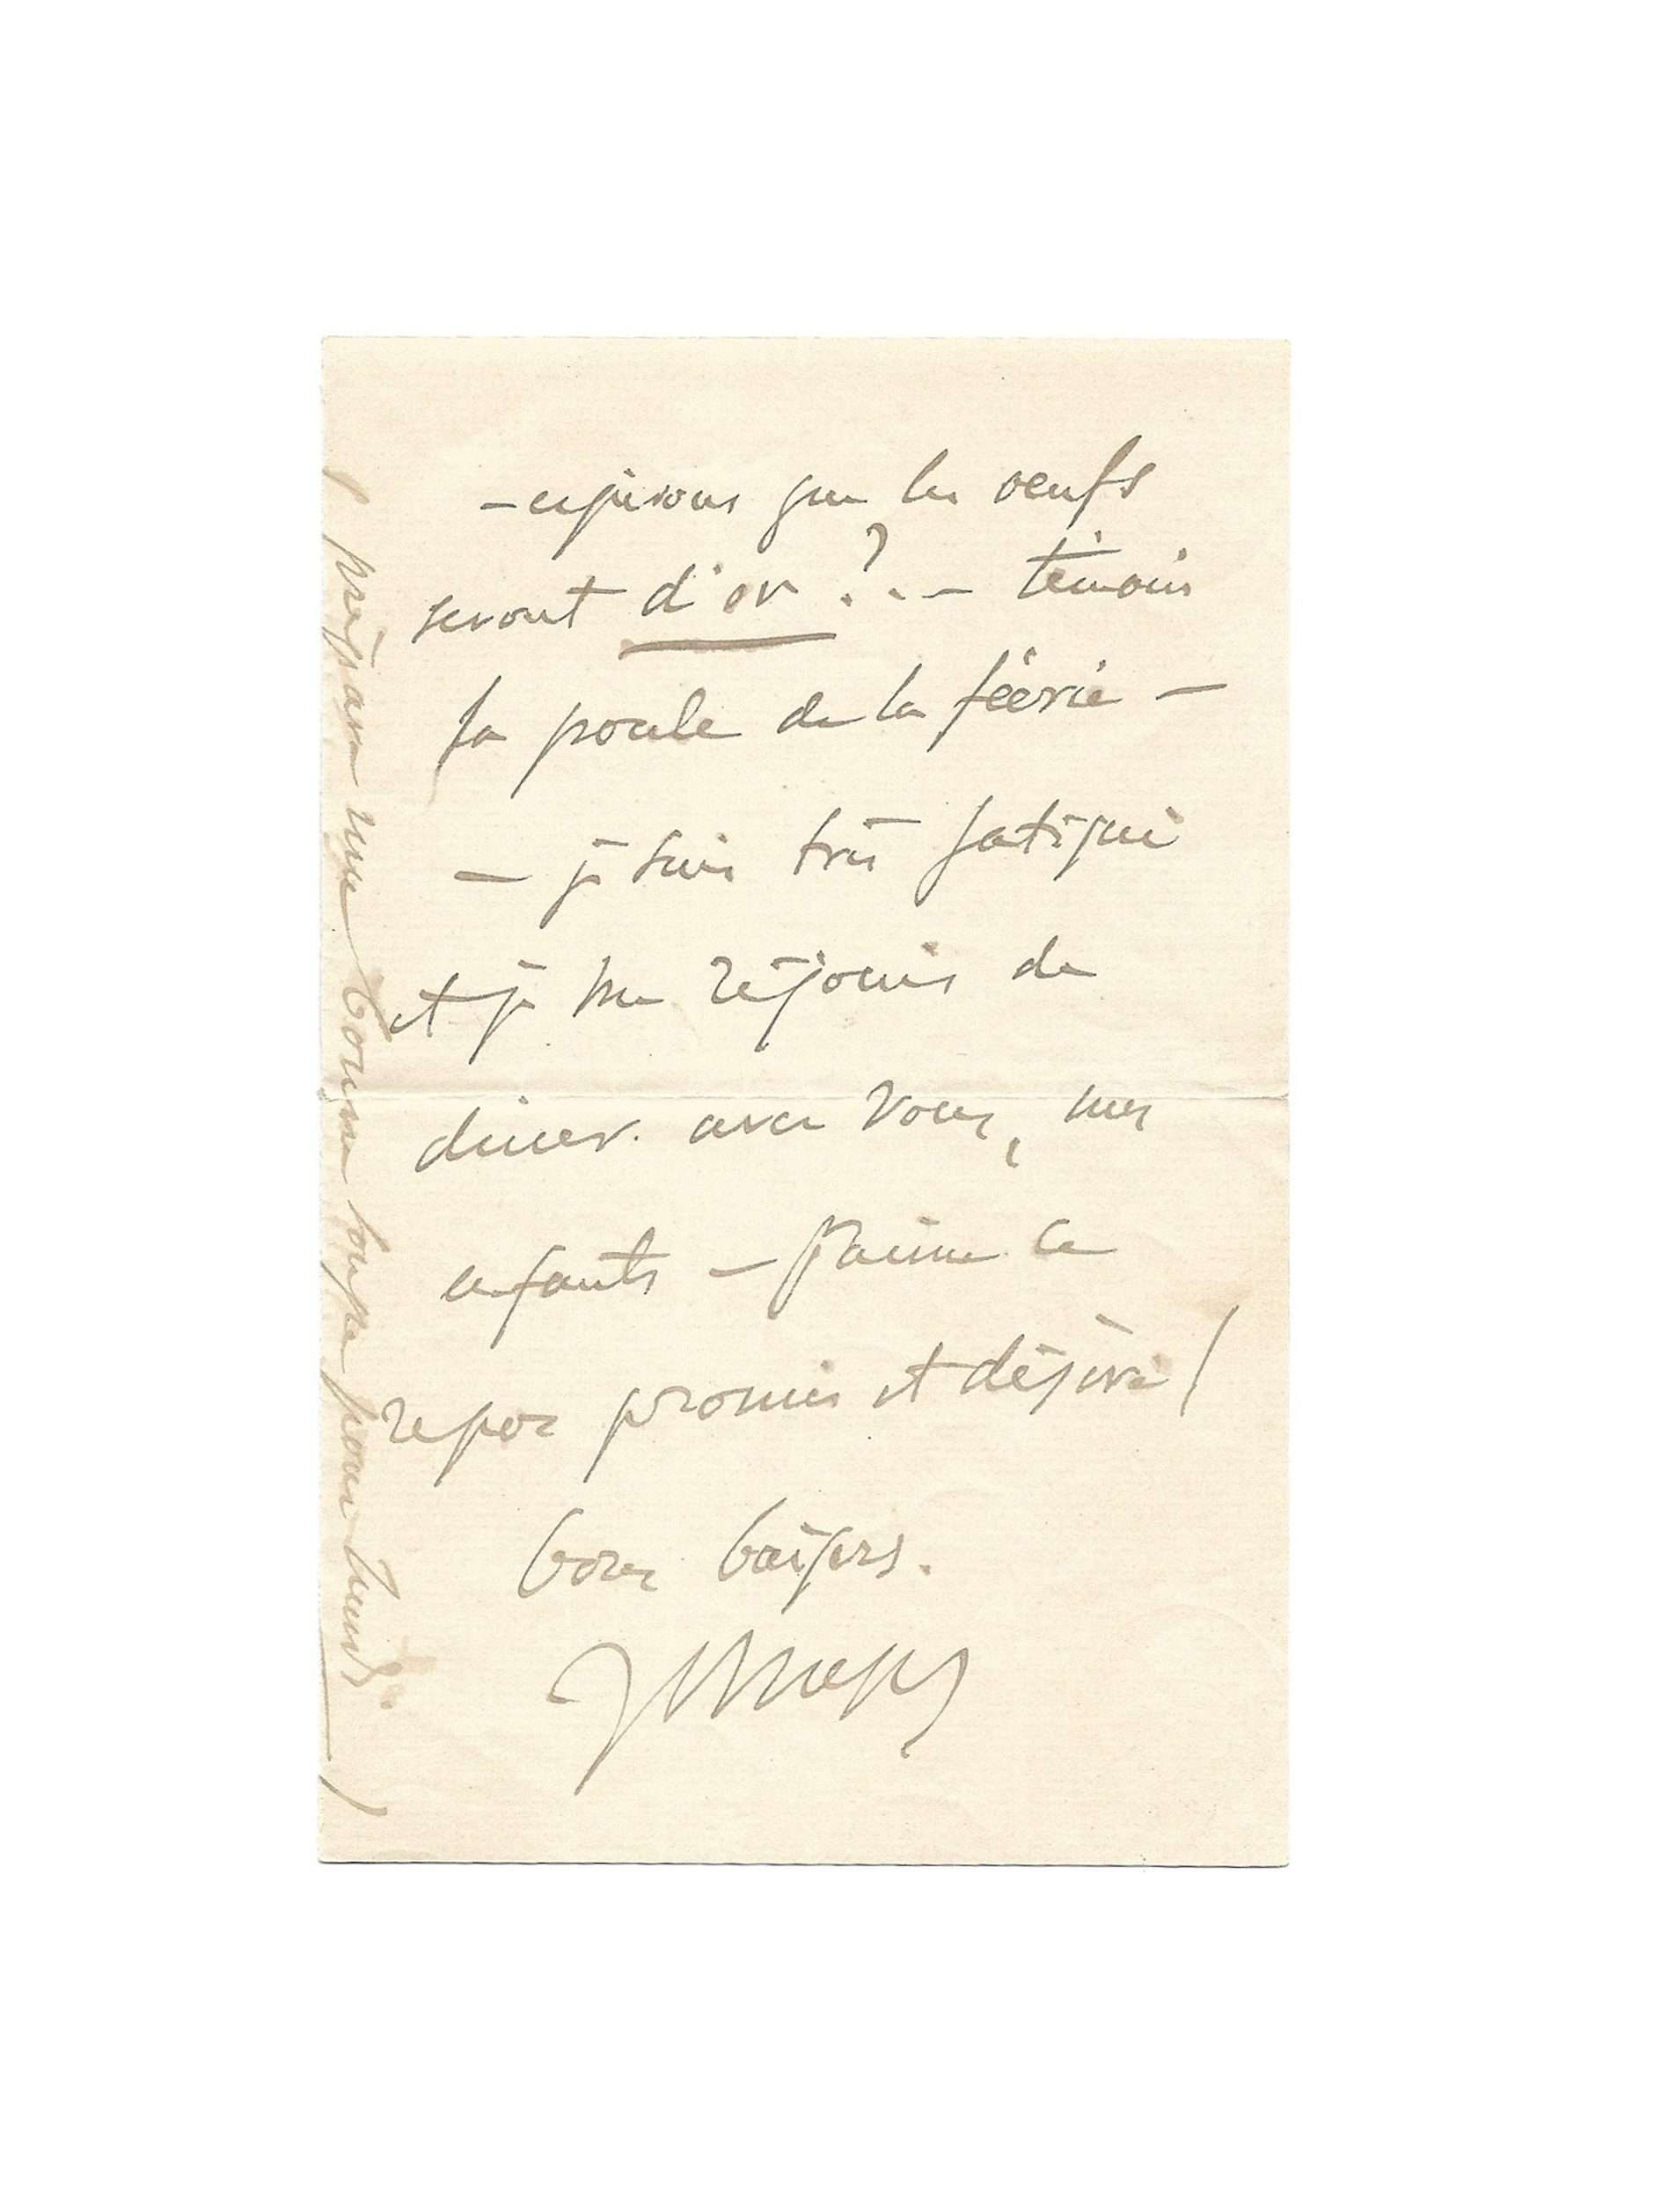 – espérons que les oeufs
seront d'or ?.. – témoin
la poule de la féerie –
– je suis très fatigué
et je me réjouis de
diner avec vous, mes
enfants – j'aime ce
repos promis et désiré !
bons baisers.
( prépare une bonne soupe pour lundi )